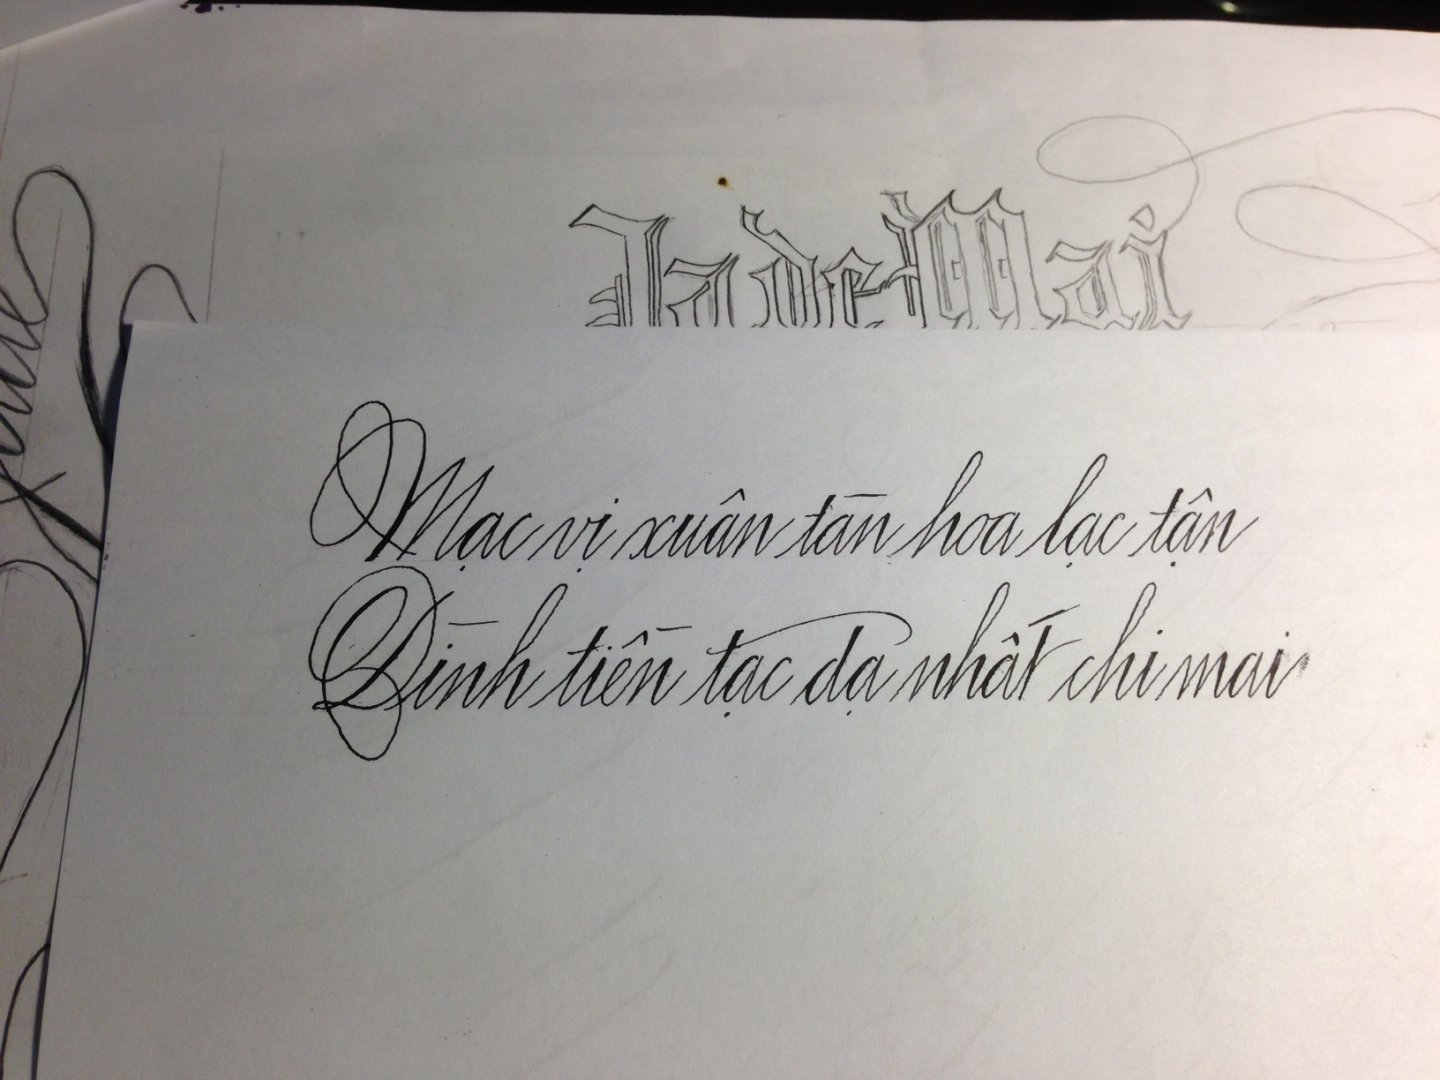 JadeMai
Mạc vị xuân tàn hoa lạc tận
Đình tiền tạc dạ nhất chi mai